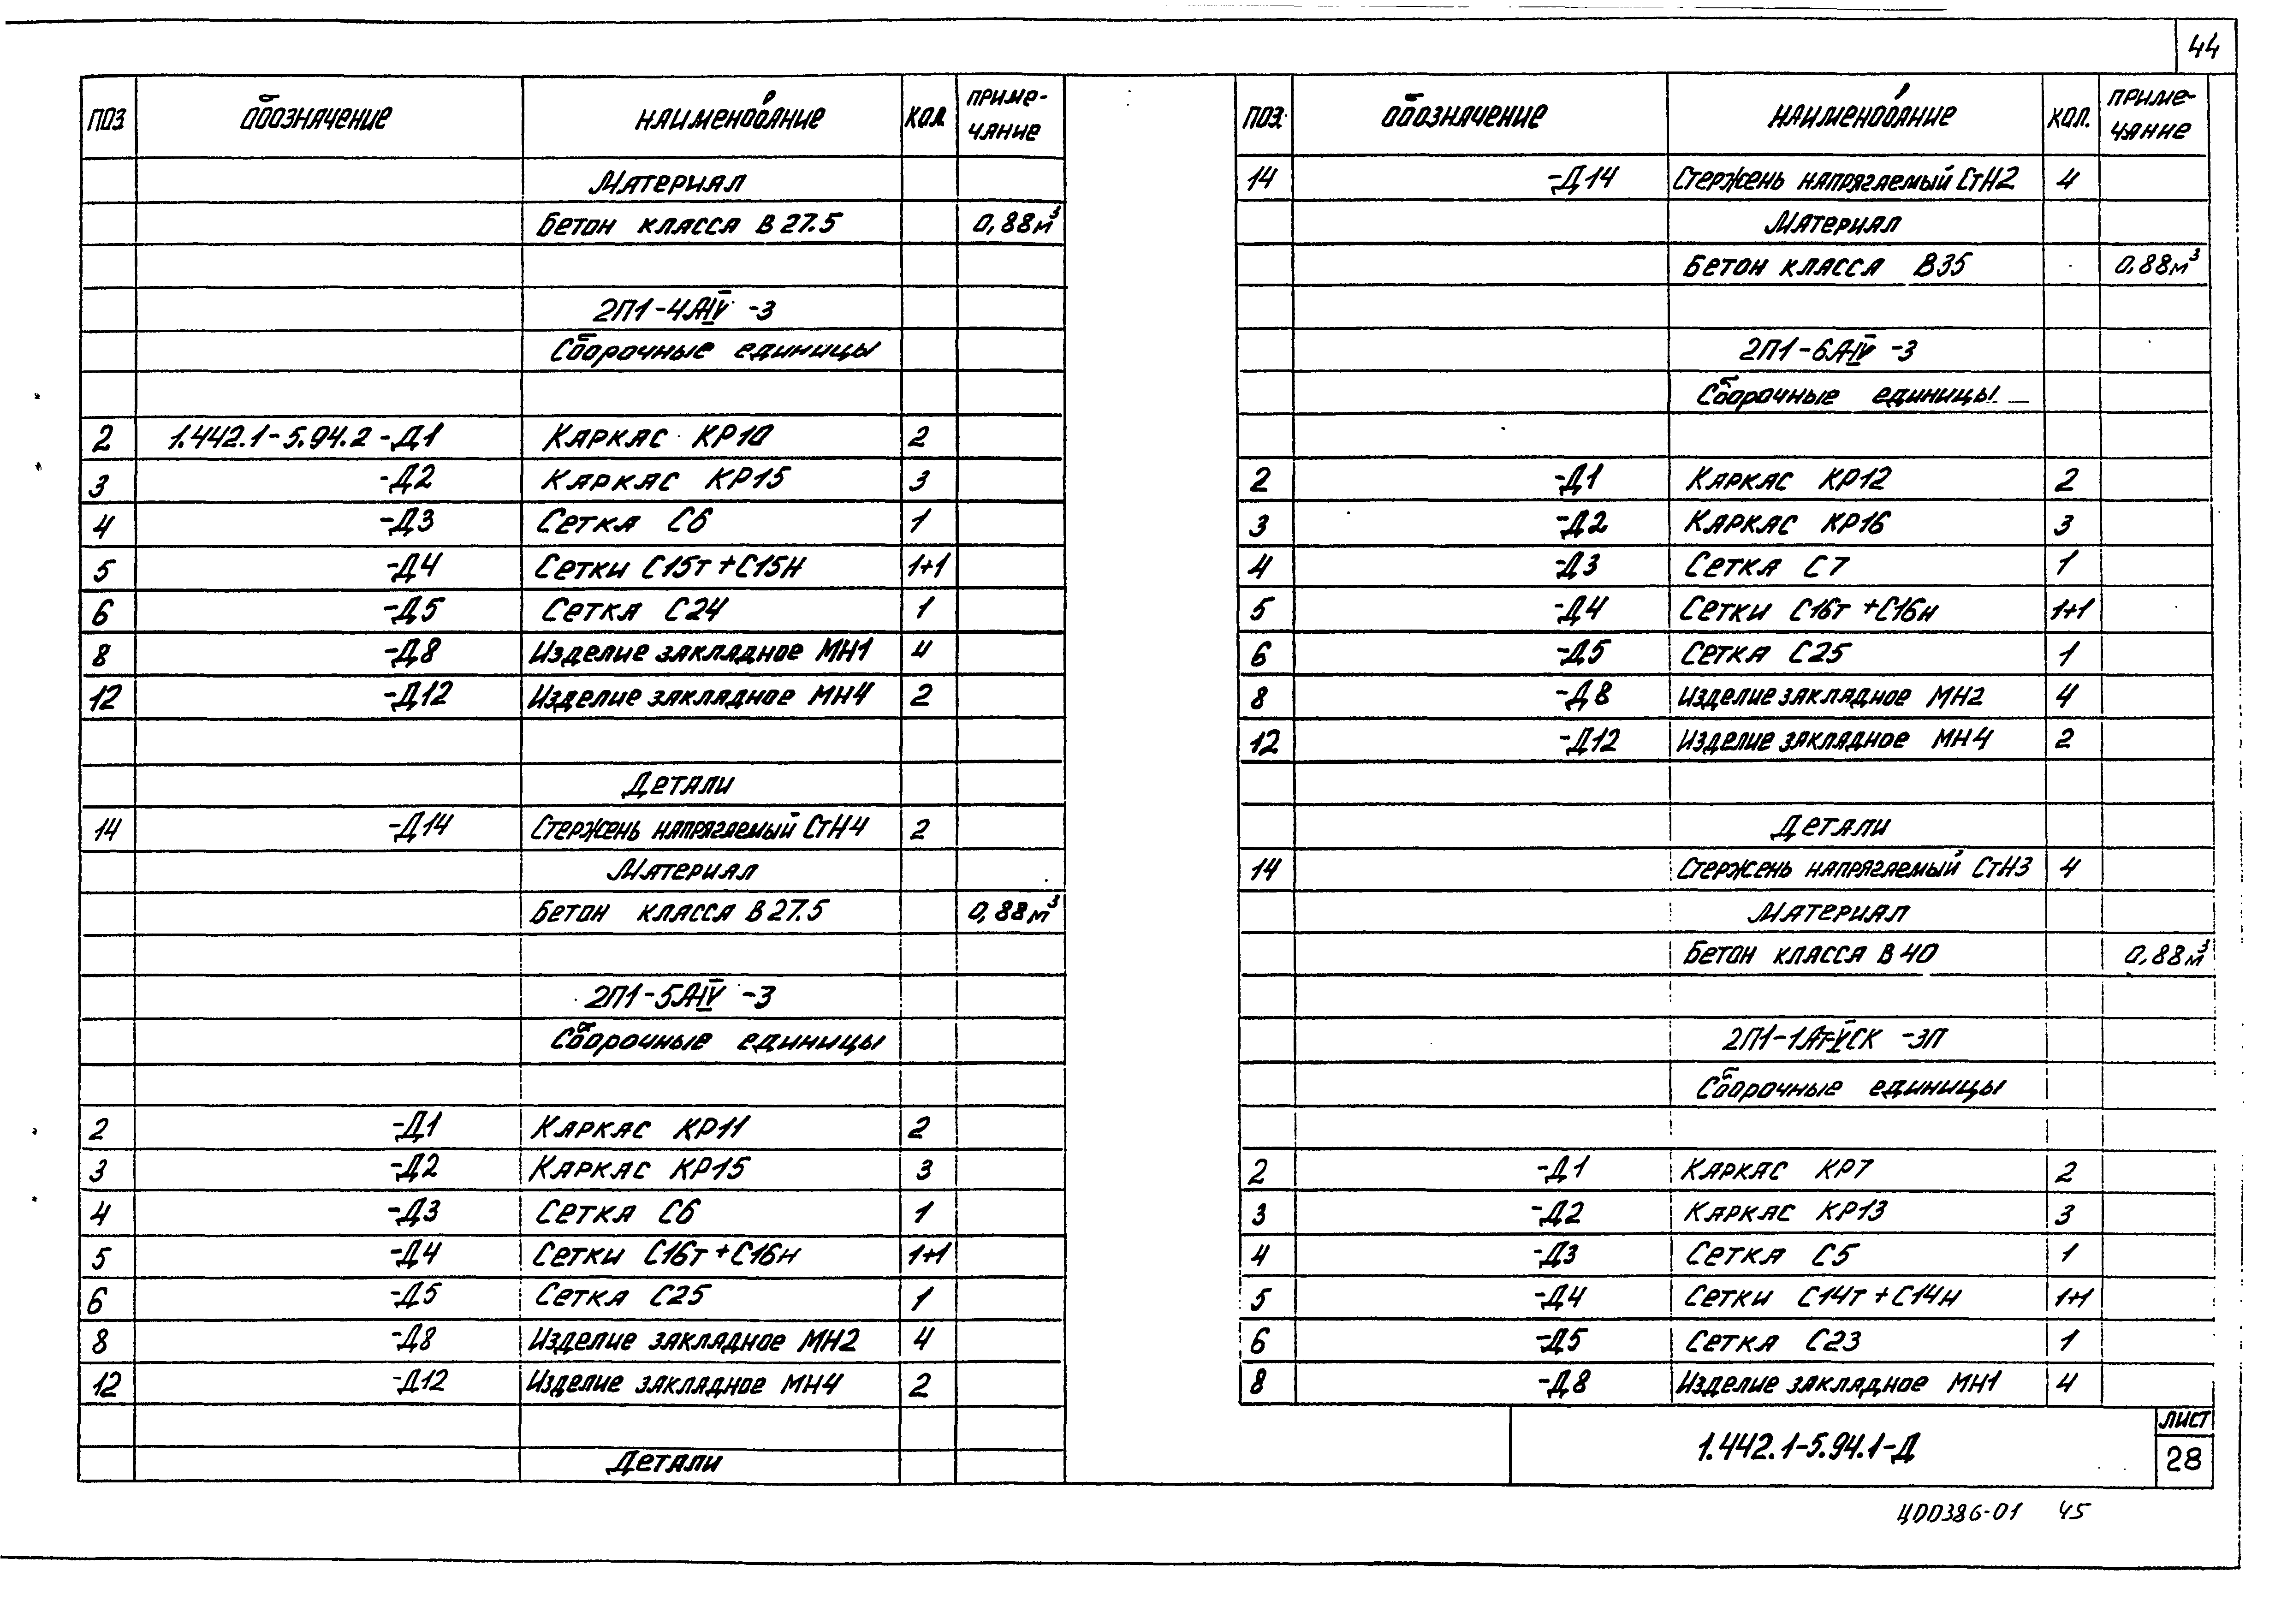 44
поз | обозначение | наименование | кол. | приме-
чание
Материал
Бетон класса В27.5 | 0,88м³
2П1-4АIV-3
Сборочные единицы
2 | 1.442.1-5.94.2-Д1 | Каркас КР10 | 2
3 | -Д2 | Каркас КР15 | 3
4 | -Д3 | Сетка С6 | 1
5 | -Д4 | Сетки С15т+С15н | 1+1
6 | -Д5 | Сетка С24 | 1
8 | -Д8 | Изделие закладное МН1 | 4
12 | -Д12 | Изделие закладное МН4 | 2
Детали
14 | -Д14 | Стержень напрягаемый СтН4 | 2
Материал
Бетон класса В27.5 | 0,88м³
2П1-5АIV-3
Сборочные единицы
2 | -Д1 | Каркас КР11 | 2
3 | -Д2 | Каркас КР15 | 3
4 | -Д3 | Сетка С6 | 1
5 | -Д4 | Сетки С16т+С16н | 1+1
6 | -Д5 | Сетка С25 | 1
8 | -Д8 | Изделие закладное МН2 | 4
12 | -Д12 | Изделие закладное МН4 | 2
Детали
поз. | обозначение | наименование | кол. | приме-
чание
14 | -Д14 | Стержень напрягаемый СтН2 | 4
Материал
Бетон класса В35 | 0,88м³
2П1-6АIV-3
Сборочные единицы
2 | -Д1 | Каркас КР12 | 2
3 | -Д2 | Каркас КР16 | 3
4 | -Д3 | Сетка С7 | 1
5 | -Д4 | Сетки С16т+С16н | 1+1
6 | -Д5 | Сетка С25 | 1
8 | -Д8 | Изделие закладное МН2 | 4
12 | -Д12 | Изделие закладное МН4 | 2
Детали
14 | Стержень напрягаемый СтН3 | 4
Материал
Бетон класса В40 | 0,88м³
2П1-1Ат-VСК-3П
Сборочные единицы
2 | -Д1 | Каркас КР7 | 2
3 | -Д2 | Каркас КР13 | 3
4 | -Д3 | Сетка С5 | 1
5 | -Д4 | Сетки С14т+С14н | 1+1
6 | -Д5 | Сетка С23 | 1
8 | -Д8 | Изделие закладное МН1 | 4
1.442.1-5.94.1-Д
лист
28
Ц00386-01 45